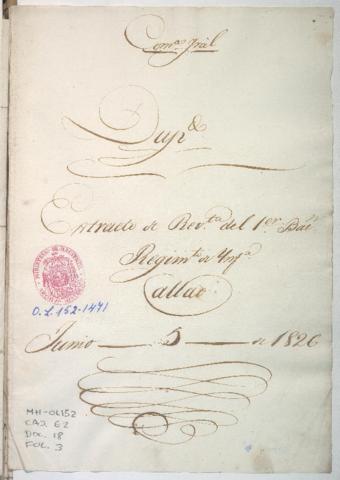 Com.ª Gral
Dup.do
Extracto de Rev.ta del 1.er Ba.n
Regim.to de Ymf.ª
Callao
O.L. 152-1471
Junio 5 de 1826
MH-OL152
CAJ. 62
DOC. 18
FOL. 3